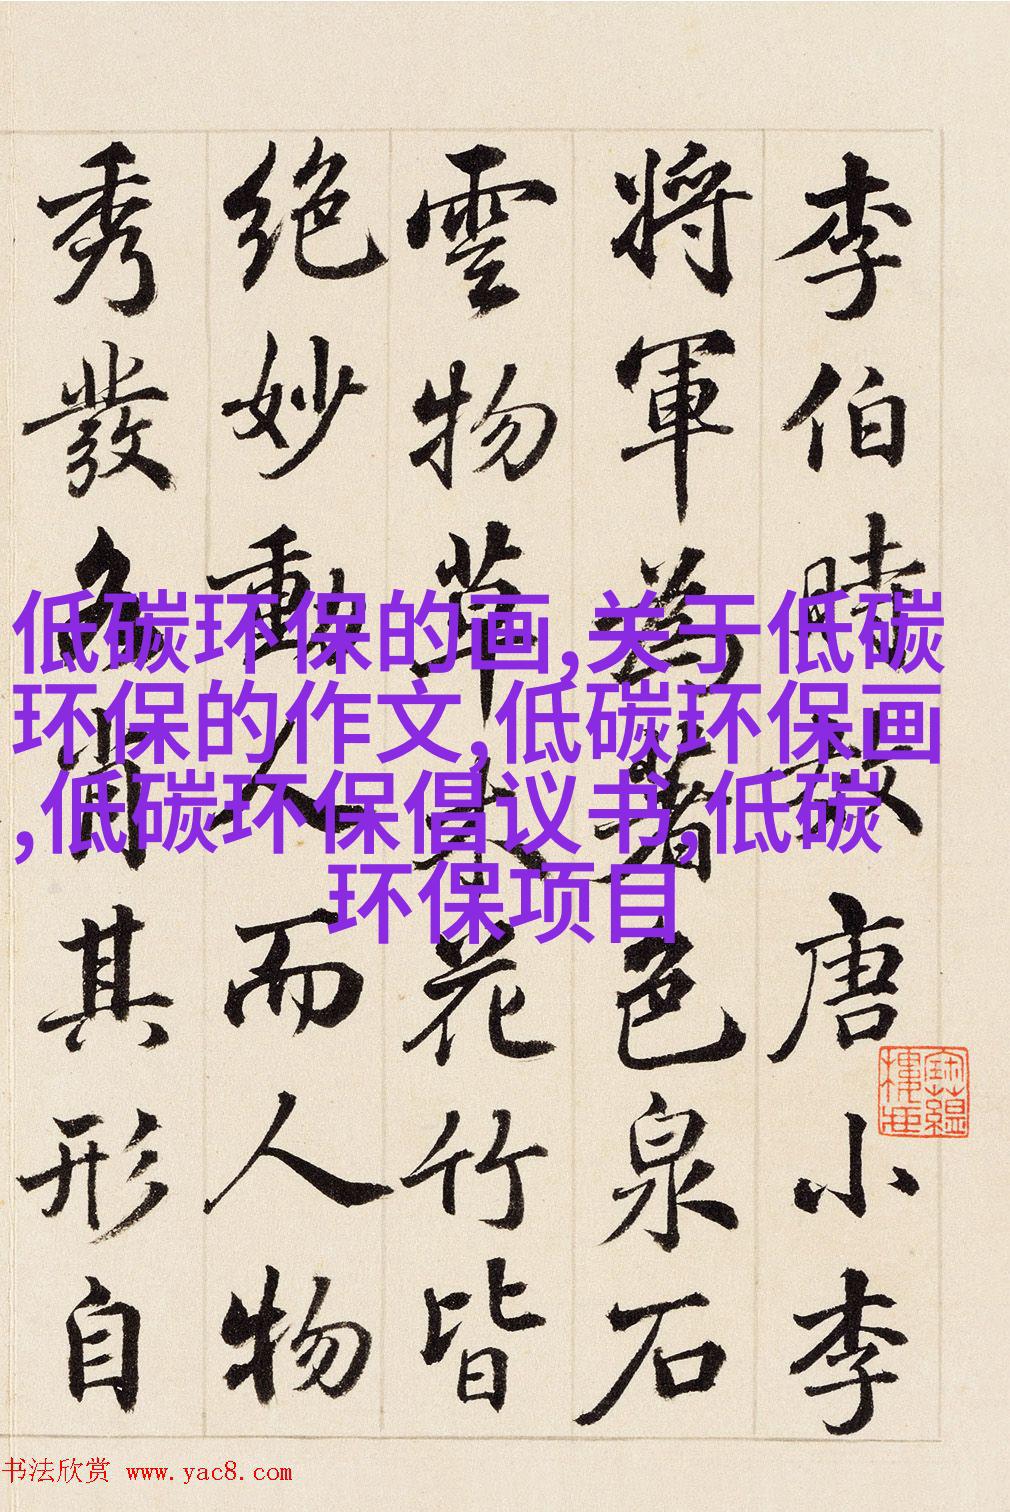 李伯時效唐小李
將軍為著色泉石
雲物草木花竹皆
絕妙動人而人物
秀發各肖其形自
低碳环保的画,关于低碳
环保的作文,低碳环保画
,低碳环保倡议书,低碳
环保项目
书法欣赏 www.yac8.com